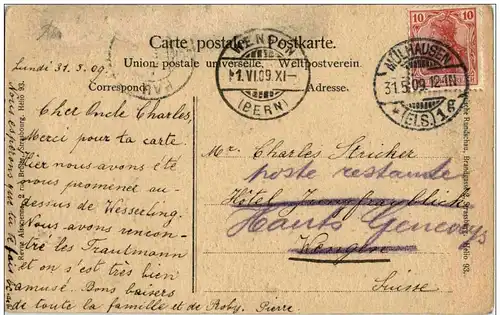 Carte postale Postkarte.
Union postale universelle. Weltpostverein.
Correspond
Adresse.
10 10
WENGEN
1.VI.09.XI-
(BERN)
MÜLHAUSEN
31.5.09.12-1N
*(ELS.)1g
Lundi 31.5.09.
Cher Oncle Charles,
Merci pour ta carte
Hier nous avons été
nous promener au-
dessus de Wesserling.
Nous avons rencon-
tré les Trautmann
et on s'est très bien
amusé. Bons baisers
de toute la famille et de Roby. Pierre
Nous espérons que tu te
Mr. Charles Stricker
poste restante
Hôtel Jungfraublick
Hauts Geneveys
Wengen
Suisse